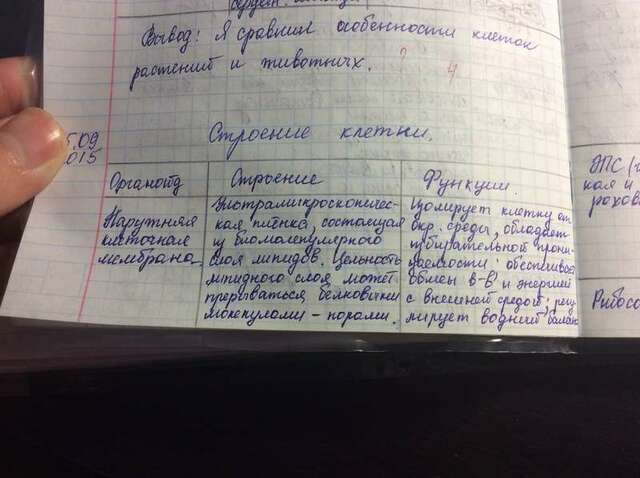 Вывод: Я сравнил особенности клеток
растений и животных. ?
4
5.09
015
Строение клетки.
Органоид
Строение
Функции.
Наружняя
клеточная
мембрана
Ультрамикроскопичес-
кая плёнка, состоящая
из бимолекулярного
слоя липидов. Цельность
липидного слоя может
прерываться белковыми
молекулами - порами.
Изолирует клетку от
окр. среды, обладает
избирательной прони-
цаемостью: обеспечивает
обмен в-в и энергией
с внешней средой; регу
лирует водный баланс
ЭПС
кая и
рохов
Рибосо